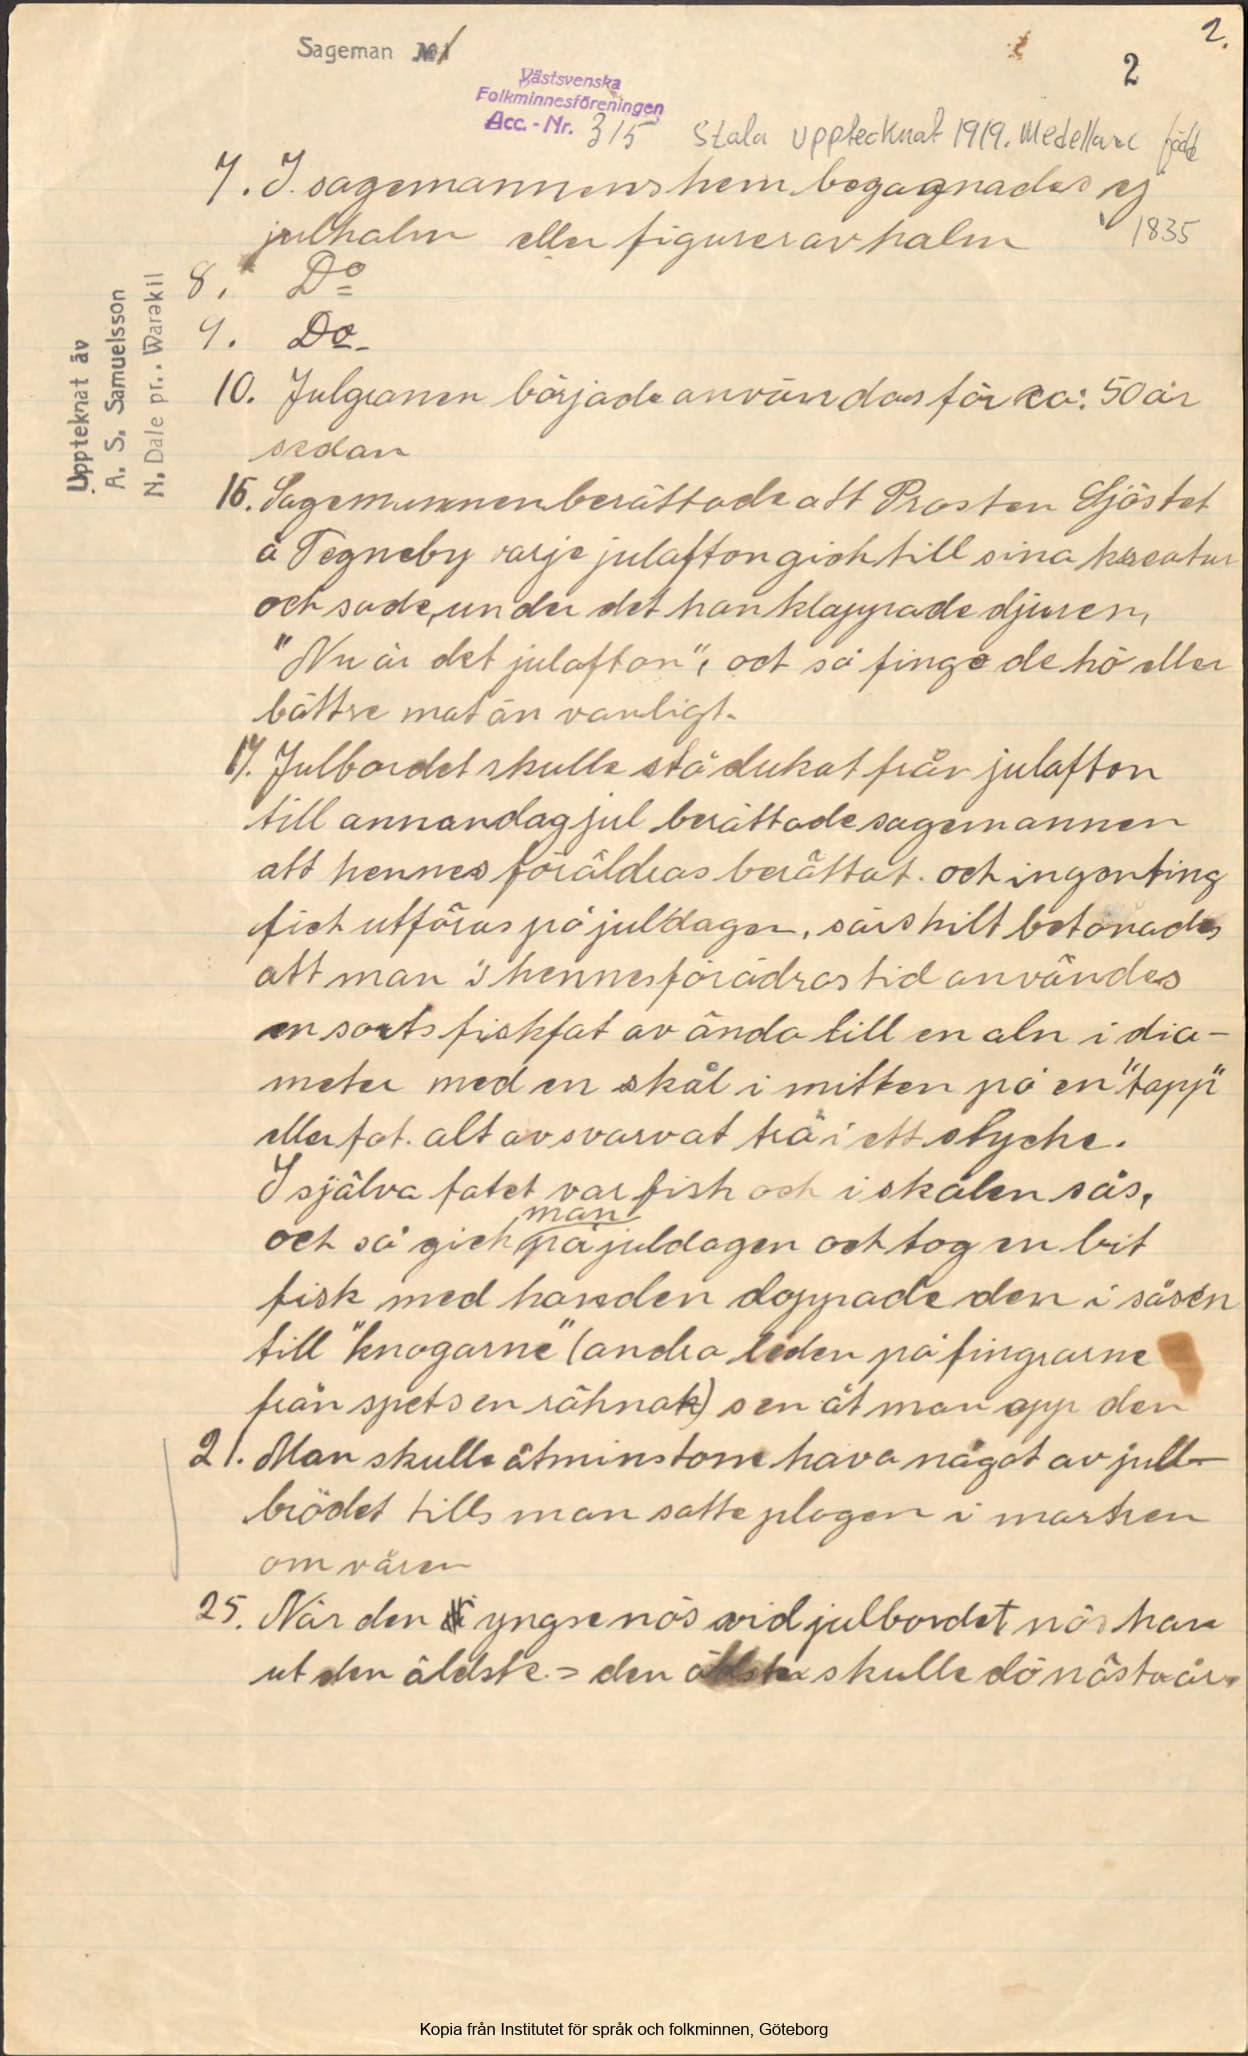 2.
Sageman № 1
2
Västsvenska
Folkminnesföreningen
Acc.-Nr. 315
Stala upptecknat 1919. Medellare född
1835
Upptecknat av
A. S. Samuelsson
N. Dale pr. Warekil
7. I sagemannens hem begagnades ej
julhalm eller figurer av halm
8. Do
9. Do
10. Julgranen började användas för ca: 50 år
sedan
16. Sagemannen berättade att Prosten Sjöstet
å Tegneby varje julafton gick till sina kreatur
och sade, under det han klappade djuren,
"Nu är det julafton", och så fingo de hö eller
bättre mat än vanligt.
17. Julbordet skulle stå dukat från julafton
till annandag jul berättade sagemannen
att hennes föräldras berättat. och ingenting
fick utföras på juldagen, särskilt betonades
att man i hennes förädras tid användes
en sorts fiskfat av ända till en aln i dia-
meter med en skål i mitten på en "tapp"
eller fot. alt av svarvat trä i ett stycke.
I själva fatet var fisk och i skålen sås,
och så gick man på juldagen och tog en bit
fisk med handen doppade den i såsen
till "knogarne" (andra leden på fingrarne
från spetsen räknat) sen åt man upp den
21. Man skulle åtminstone hava något av jull-
brödet tills man satte plogen i marken
om våren
25. När den yngre nös vid julbordet nös han
ut den äldste = den äldste skulle dö nästa år.
Kopia från Institutet för språk och folkminnen, Göteborg